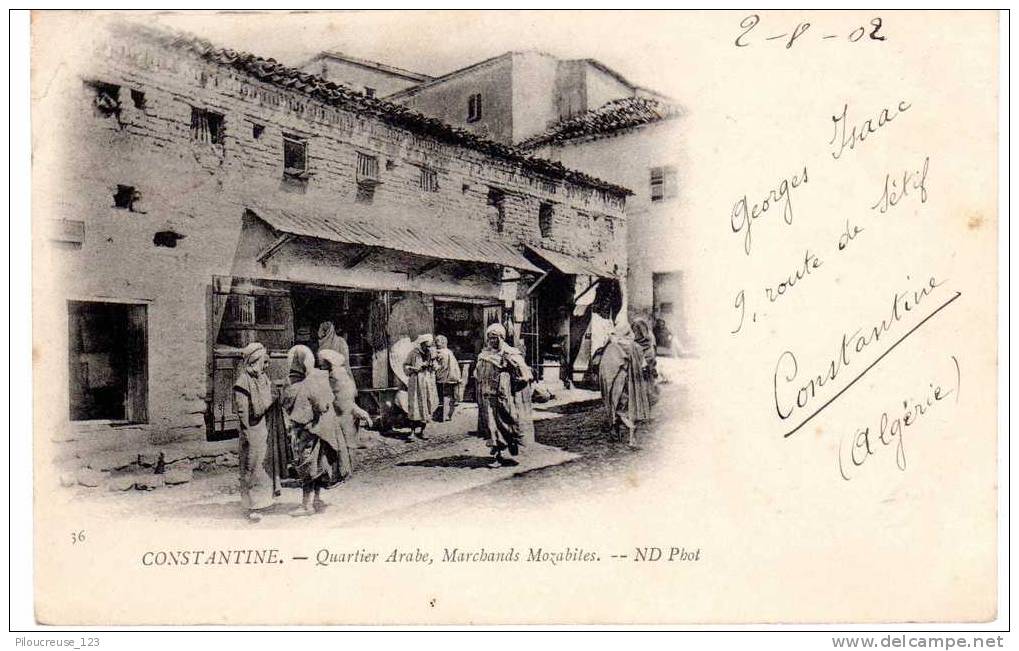 2-8-02
Georges Isaac
9, route de Sétif
Constantine
(Algérie)
36
CONSTANTINE. — Quartier Arabe, Marchands Mozabites. -- ND Phot
Piloucreuse_123
www.delcampe.net